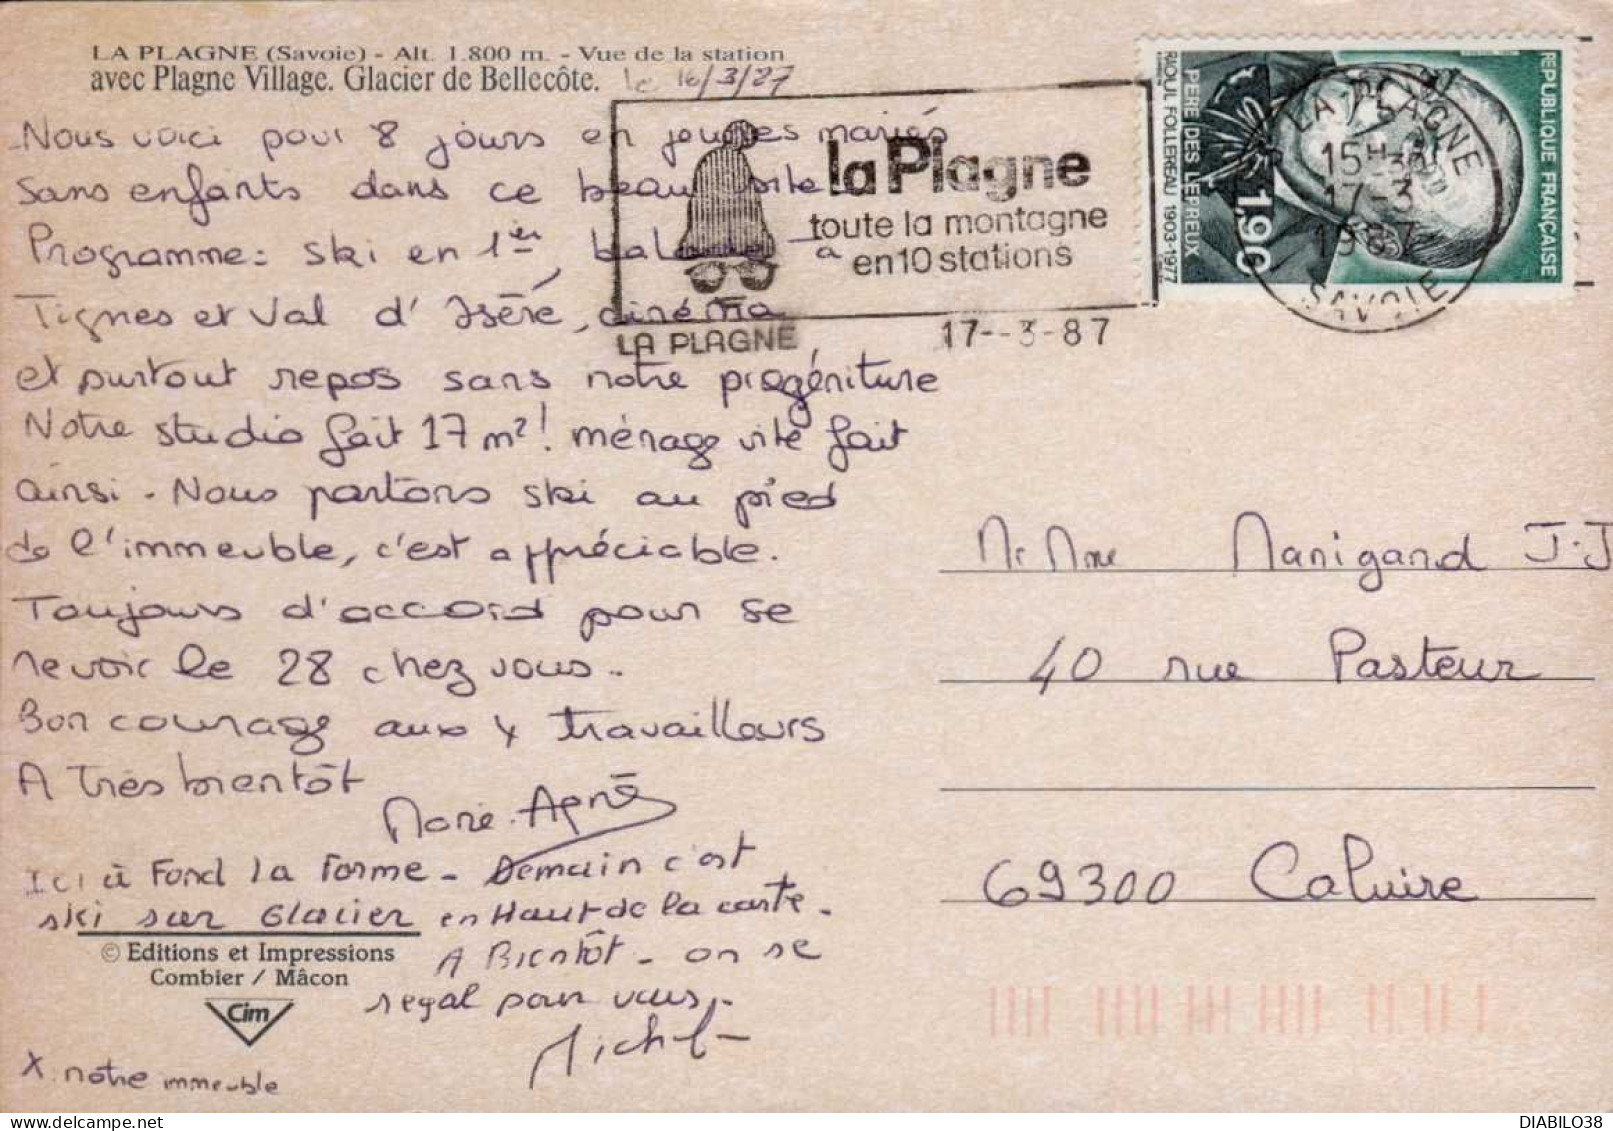 LA PLAGNE (Savoie) - Alt. 1.800 m. - Vue de la station
avec Plagne Village. Glacier de Bellecôte.
le 16/3/87
Nous voici pour 8 jours en jeunes mariés
sans enfants dans ce beau site
Programme : ski en 1er, balade à
Tignes et Val d'Isère, cinéma
et surtout repos sans notre progéniture
Notre studio fait 17 m² ! ménage vite fait
ainsi. Nous partons ski au pied
de l'immeuble, c'est appréciable.
Toujours d'accord pour se
revoir le 28 chez vous.
Bon courage aux 4 travailleurs
A Très bientôt
Marie-Agnès
Ici à Fond la Forme - Demain c'est
ski sur Glacier en Haut de la carte.
A Bientôt - on se
régal pour vous.
Michel
© Editions et Impressions
Combier / Mâcon
Cim
X notre immeuble
la Plagne
toute la montagne
en 10 stations
LA PLAGNE
17--3-87
LA PLAGNE
15H30
17-3
1987
SAVOIE
REPUBLIQUE FRANÇAISE
1,90
PERE DES LEPREUX
RAOUL FOLLEREAU 1903-1977
Mr Mme Manigand J.J
40 rue Pasteur
69300 Caluire
DIABILO38